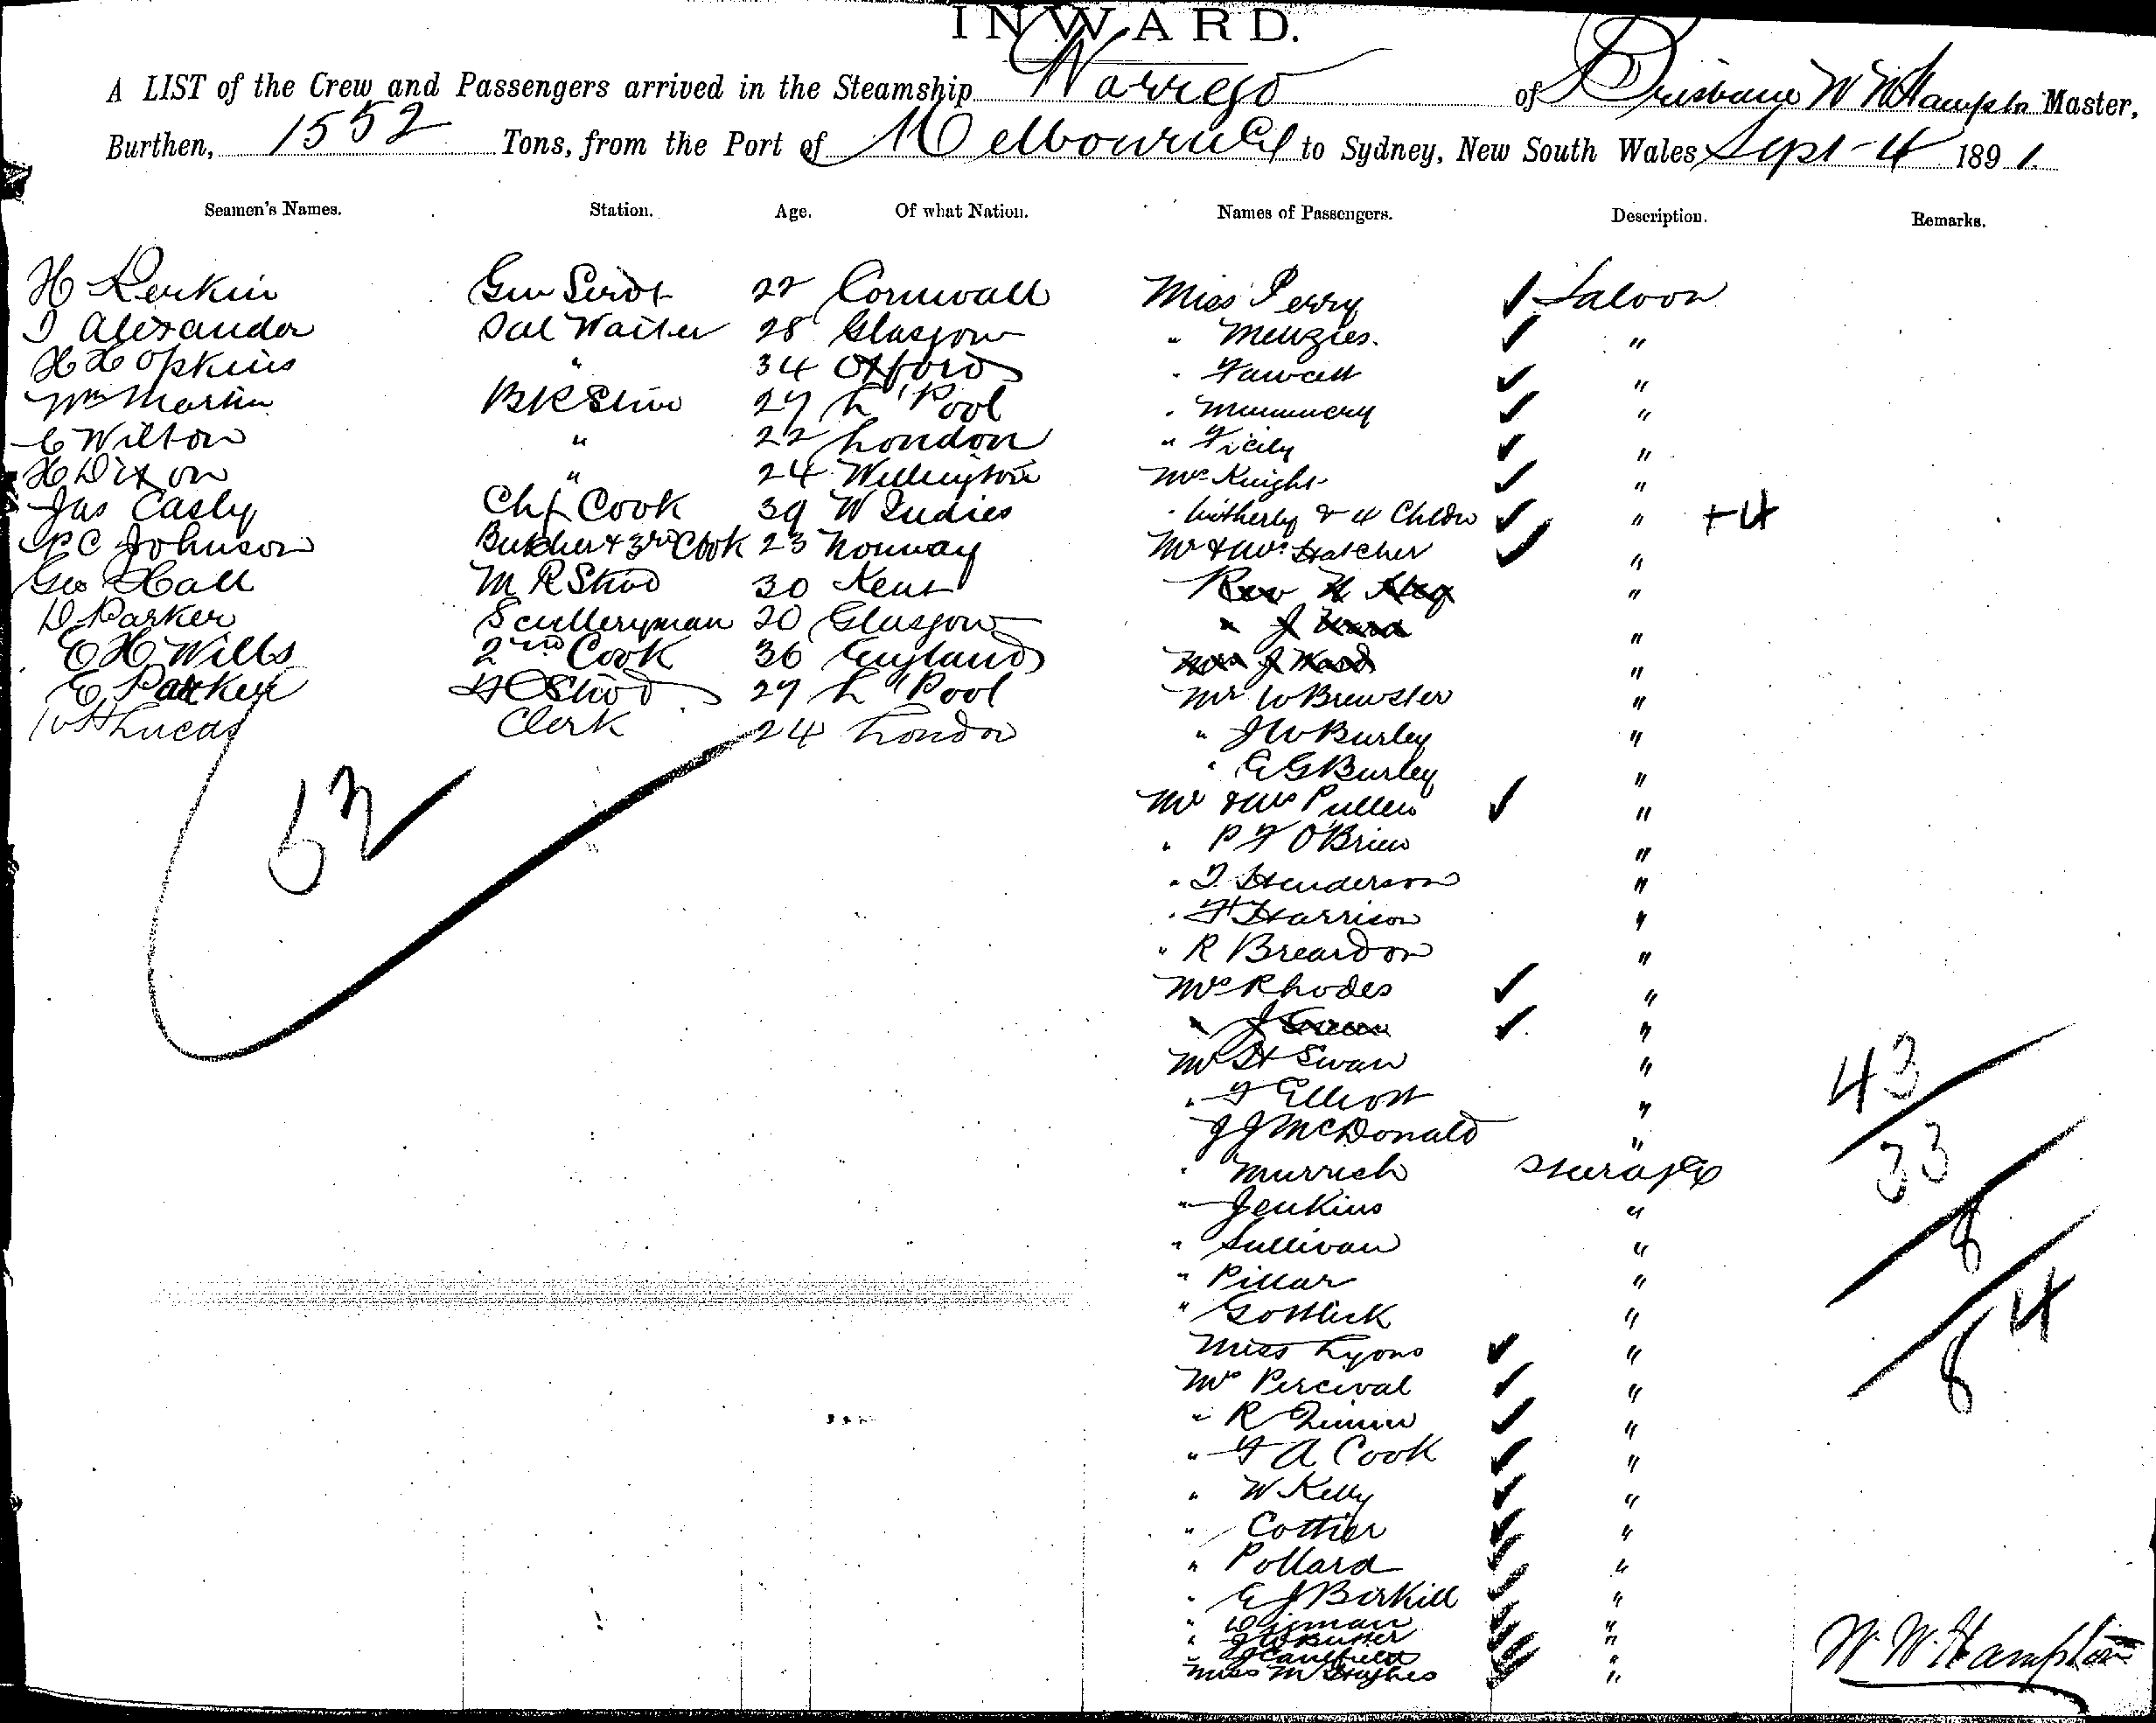 INWARD.
A LIST of the Crew and Passengers arrived in the Steamship Warrego of Brisbane W W Hampton Master,
Burthen, 1552 Tons, from the Port of Melbourne to Sydney, New South Wales Sept 4 1891.
Seamen's Names. Station. Age. Of what Nation. Names of Passengers. Description. Remarks.
H Lerkin Gen Servt 22 Cornwall Miss Perry ✓ Saloon
J Alexander Sal Waiter 28 Glasgow " Menzies. ✓ "
H Hopkins " 34 Oxford " Fawcett ✓ "
Wm Martin BK Stwd 27 L'Pool " Mummery ✓ "
C Wilton " 22 London " Ficily ✓ "
H Dixon " 24 Wellington Mrs Knight ✓ "
Jas Casly Chf Cook 39 W Indies " Witherby & 4 Chldn ✓ " +4
P C Johnson Butcher & 3rd Cook 23 Norway Mr & Mrs Hatcher ✓ "
Geo Hall M R Stwd 30 Kent Rev "
D Parker Scullery man 20 Glasgow " J Ward "
E H Wills 2nd Cook 36 England Mrs J Ward "
E Parker Stwd 27 L'Pool Mr W Brewster "
W H Lucas Clerk 24 London " J W Burley "
" E G Burley "
52
Mr & Mrs Pullen ✓ "
" P F O'Brien "
" J Henderson "
" F Harrison "
" R Breardon "
Mrs Rhodes ✓ "
" J Green ✓ "
Mr H Swan "
43
" F Elliott "
J J McDonald "
33
" Murrich Steerage
" Jenkins "
" Sullivan " 8
" Pillar "
" Gottlick " 4
Miss Lyons ✓ "
8
Mrs Percival ✓ "
" R ✓ "
" F A Cook ✓ "
" W Kelly ✓ "
" Cottier ✓ "
" Pollard ✓ "
" E J Birkill ✓ "
" Wigman ✓ "
" J W Butler ✓ "
" J Caulfield ✓ "
Miss M Hughes ✓ "
W. W. Hampton